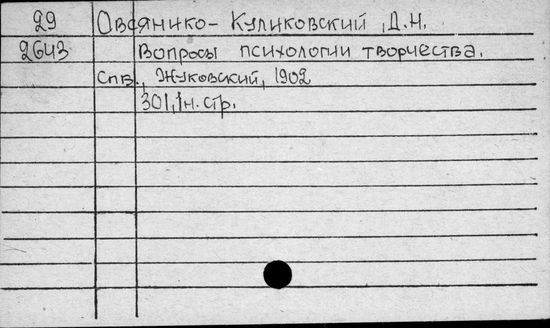 29 Овсянико-Куликовский, Д.Н.
2643 Вопросы психологии творчества.
Спв., Жуковский, 1902
301, 1н. стр.